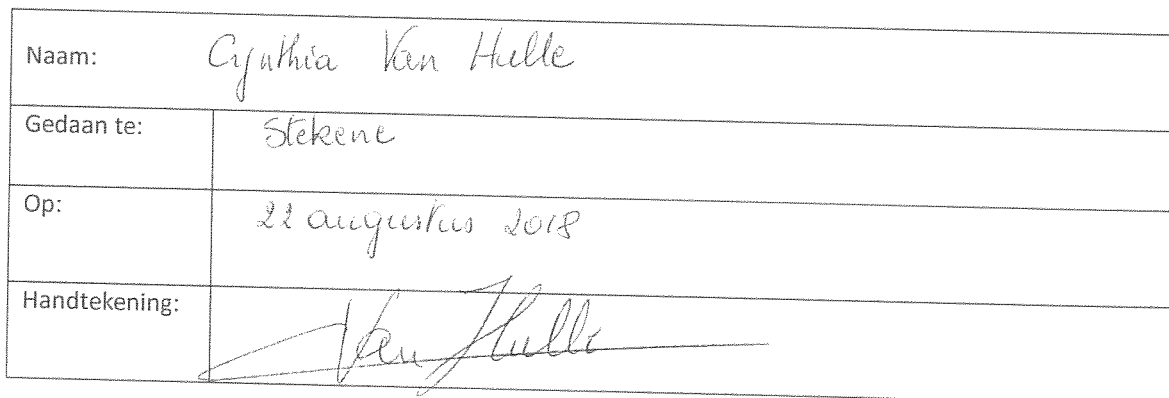 Naam: Cynthia Van Hulle
Gedaan te: Stekene
Op: 22 augustus 2018
Handtekening: Van Hulle